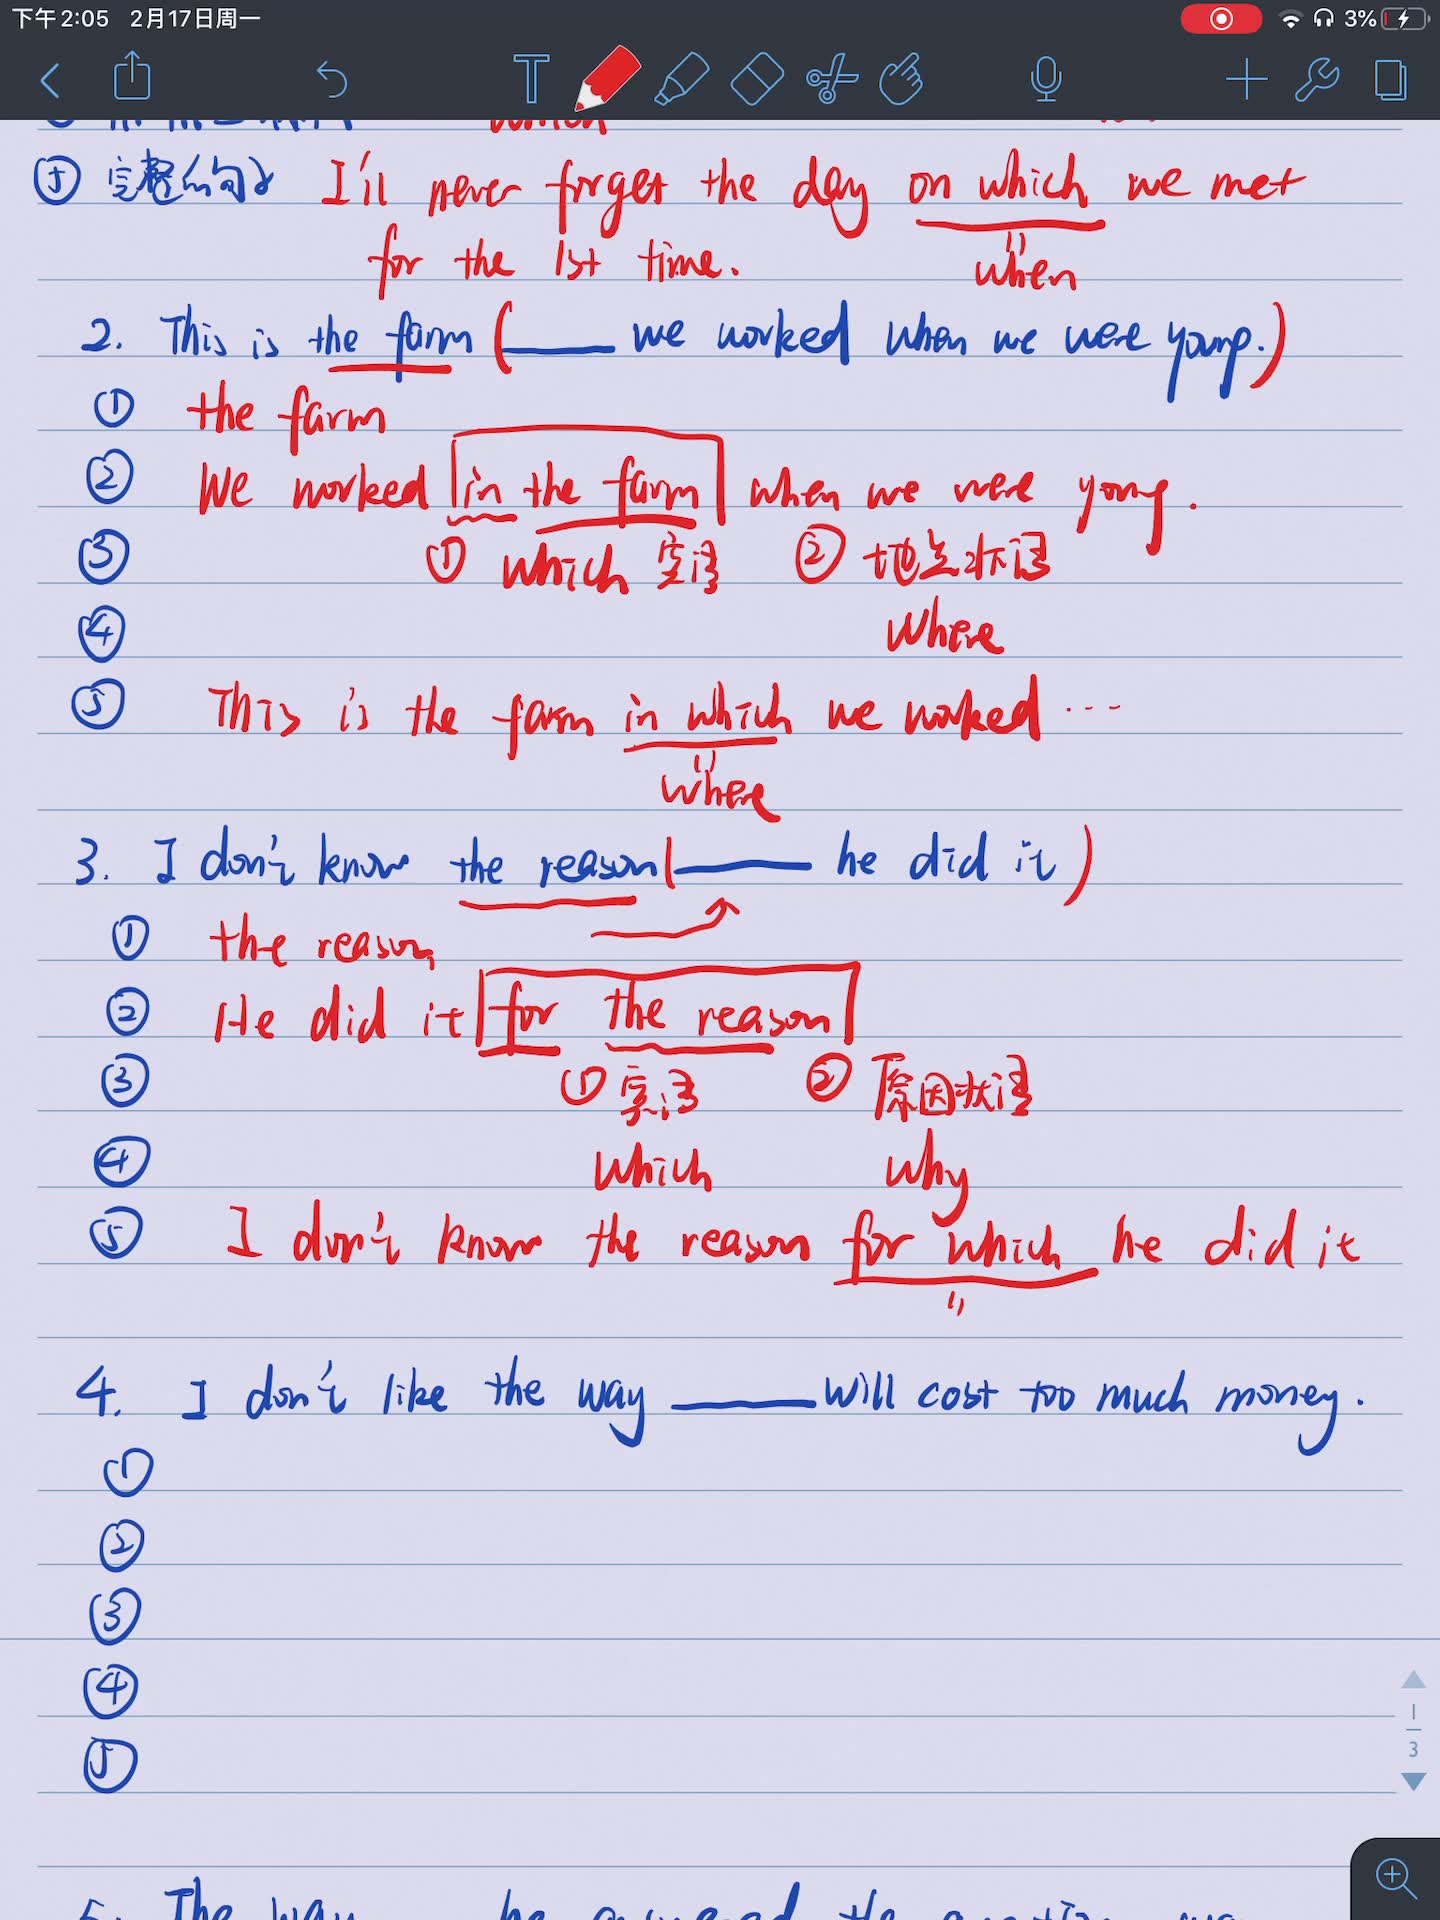 下午2:05 2月17日周一 3%
T
which
⑤ 完整的句子 I'll never forget the day on which we met
for the 1st time. when
2. This is the farm ( ____ we worked when we were young.)
① the farm
② We worked in the farm when we were young.
③ ① which 宾语 ② 地点状语
④ where
⑤ This is the farm in which we worked ...
where
3. I don't know the reason ( ____ he did it )
① the reason
② He did it for the reason
③ ① 宾语 ② 原因状语
④ which why
⑤ I don't know the reason for which he did it
4. I don't like the way ____ will cost too much money.
①
②
③
④
⑤
1
3
5. The way he answered the question was